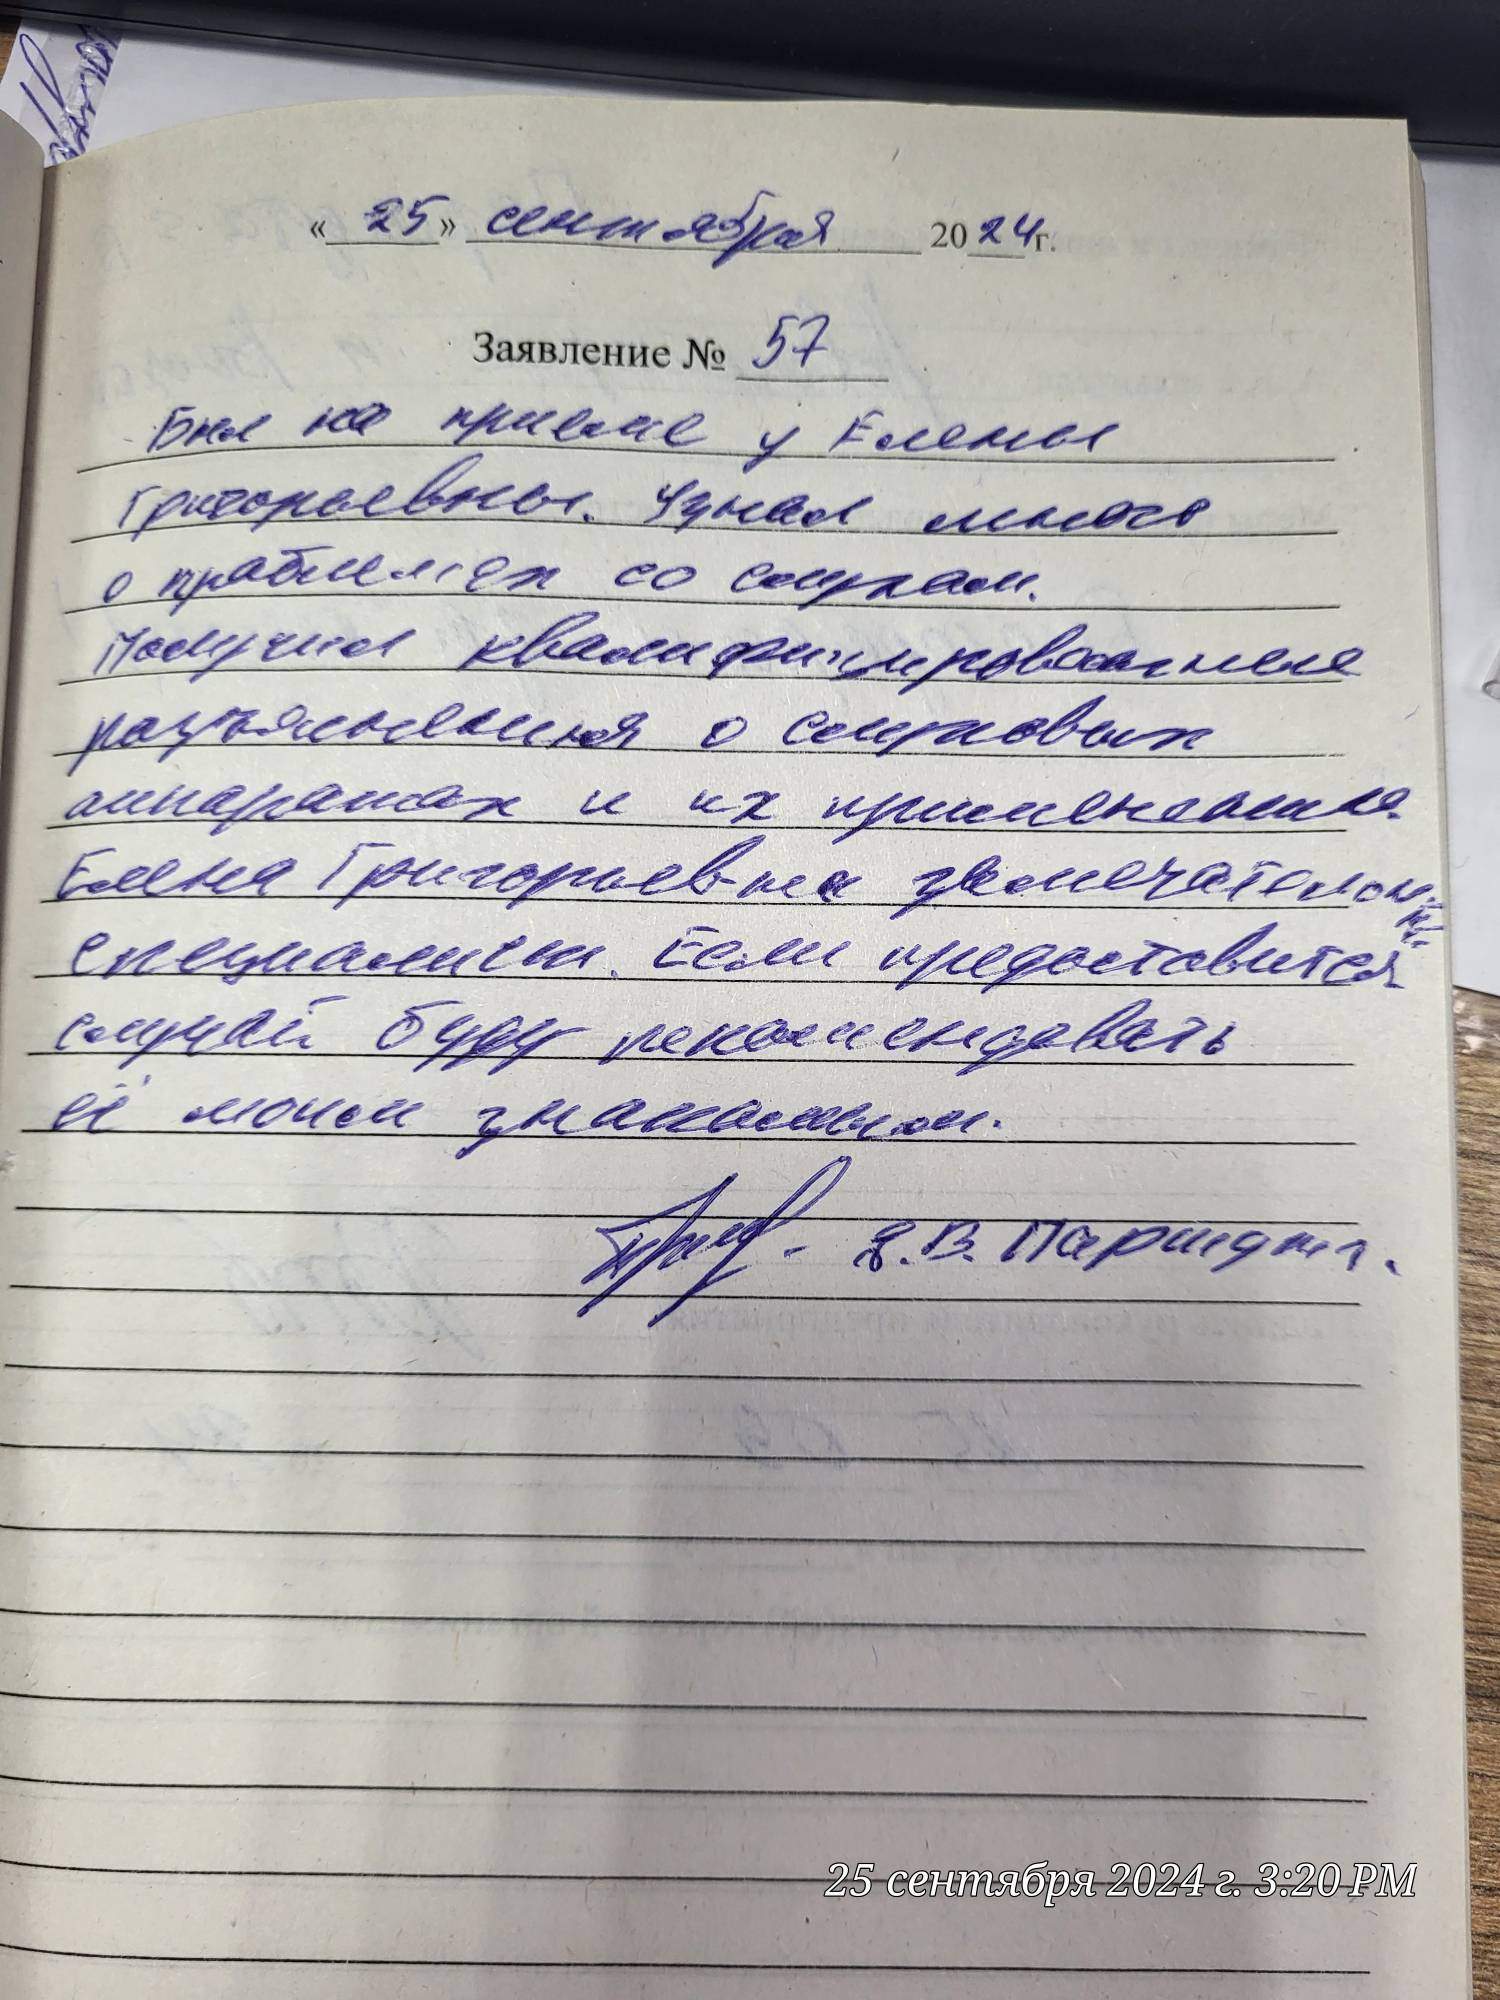 « 25 » сентября 2024г.
Заявление № 57
Был на приёме у Елены
Григорьевны. Узнал много
о проблемах со слухом.
Получил квалифицированные
разъяснения о слуховых
аппаратах и их применение.
Елена Григорьевна замечательный
специалист. Если предоставится
случай буду рекомендовать
её моим знакомым.
В.
25 сентября 2024 г. 3:20 PM